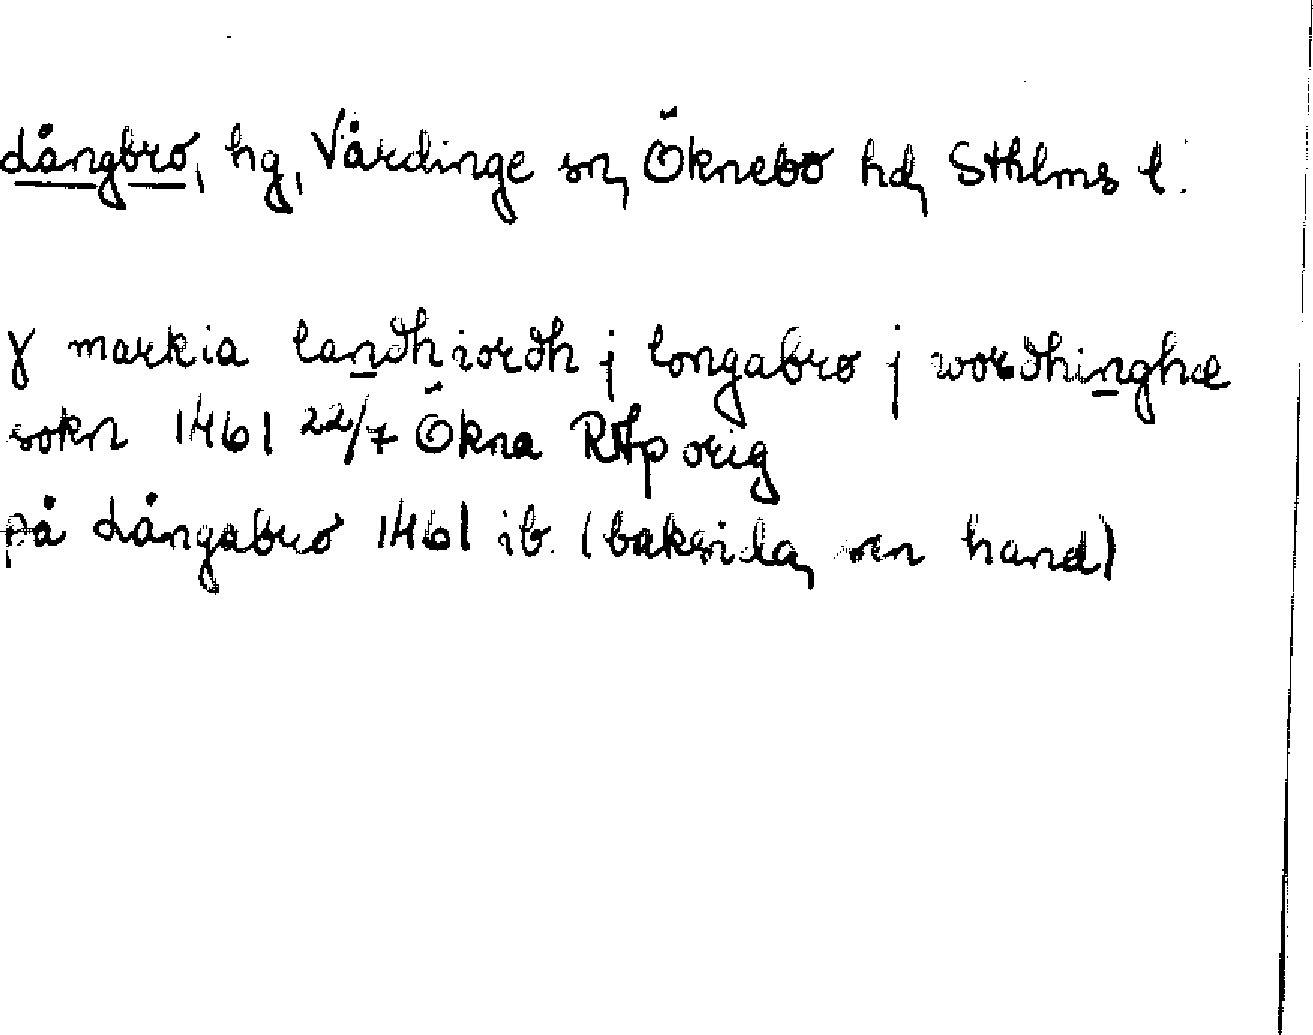 Långbro, hg, Vårdinge sn, Öknebo hd, Sthlms l.
γ markia landhiordh j longabro j wordhinghæ
sokn 1461 22/7 Ökna RAp orig
på Långabro 1461 ib. (baksida, sen hand)